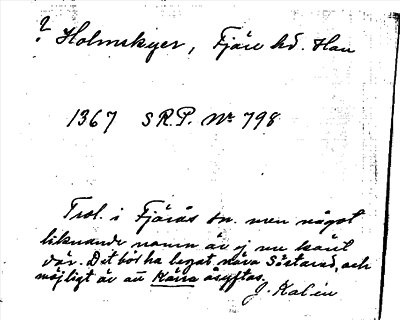 ? Holmskyer, Fjäre hd. Han
1367 S.R.P. Nr 798
Trol. i Fjärås sn. men något
liknande namn är ej nu känt
där. Det bör ha legat nära Såstared, och
möjligt är att Kärra åsyftas.
J. Kalén